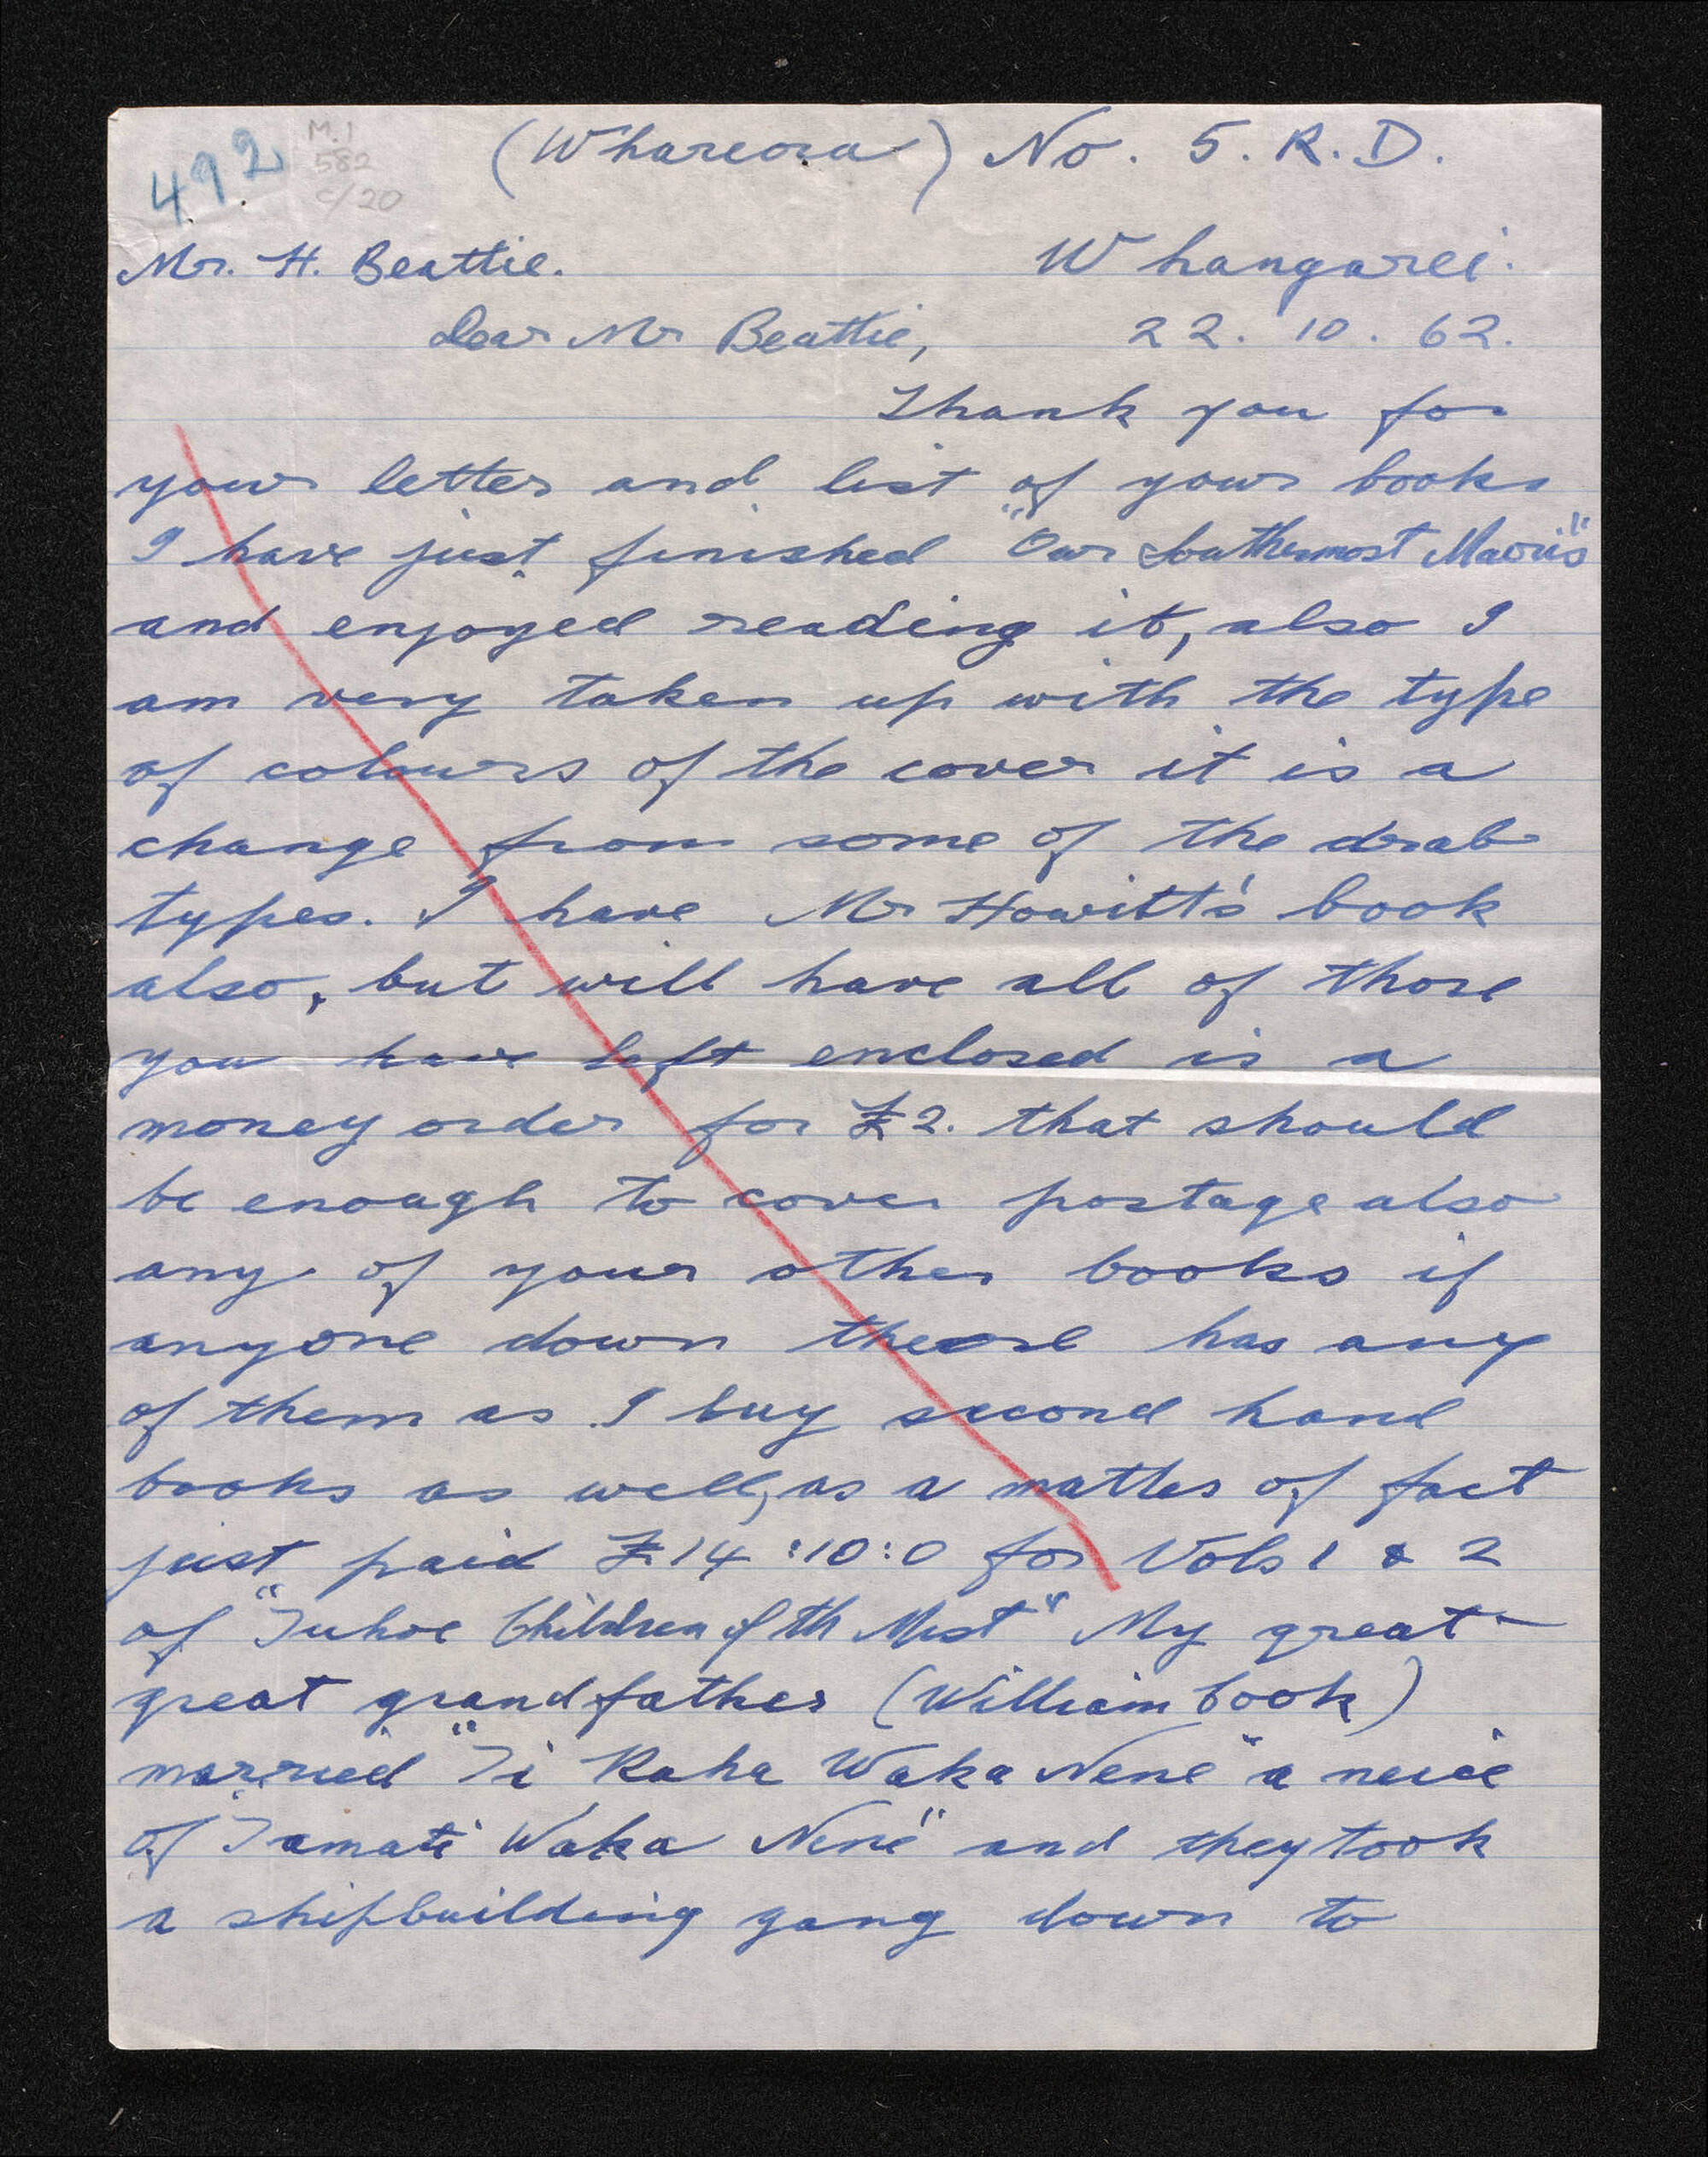 492
M.I
582
c/20
(Whareora) No. 5. R. D.
Mr. H. Beattie. Whangarei.
Dear Mr Beattie, 22. 10. 62.
Thank you for
your letter and list of your books
I have just finished "Our Southernmost Maoris"
and enjoyed reading it, also I
am very taken up with the type
of colours of the cover it is a
change from some of the drab
types. I have Mr Howitt's book
also, but will have all of those
you have left enclosed is a
money order for £2. that should
be enough to cover postage also
any of your other books if
anyone down there has any
of them as I buy second hand
books as well, as a matter of fact
just paid £14:10:0 for Vols 1 & 2
of "Tuhoe Children of th Mist" My great-
great grandfather (William Cook)
married "Ti Raha Waka Nene" a neice
of "Tamati Waka Nene" and they took
a shipbuilding gang down to